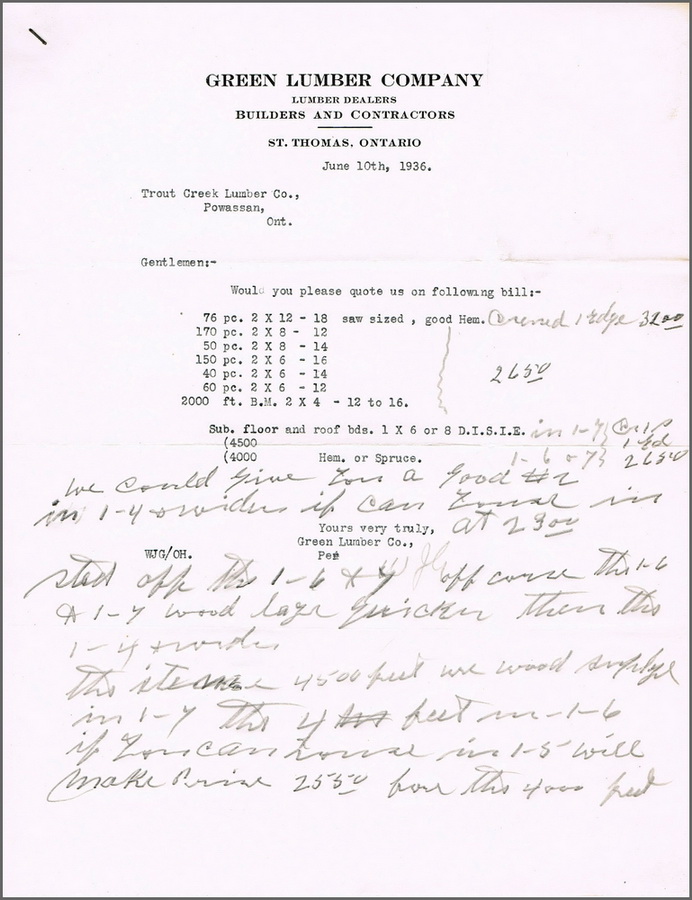 GREEN LUMBER COMPANY
LUMBER DEALERS
BUILDERS AND CONTRACTORS
ST. THOMAS, ONTARIO
June 10th, 1936.
Trout Creek Lumber Co.,
Powassan,
Ont.
Gentlemen:-
Would you please quote us on following bill:-
76 pc. 2 X 12 - 18 saw sized , good Hem. 1 Edge 3200
170 pc. 2 X 8 - 12
50 pc. 2 X 8 - 14
150 pc. 2 X 6 - 16
40 pc. 2 X 6 - 14 2650
60 pc. 2 X 6 - 12
2000 ft. B.M. 2 X 4 - 12 to 16.
Sub. floor and roof bds. 1 X 6 or 8 D.I.S.I.E. in 1-7
(4500 1 Ed
(4000 Hem. or Spruce. 1-6 & 7 2650
we could give you a good
in 1-4 & wider if can in
Yours very truly, at 2300
Green Lumber Co.,
WJG/OH. Per
the 1-6 & 7 off corse the 1-6
& 1-7 wood quicker then the
1-4 & wider
the 4500 feet we wood
in 1-7 the 4 feet in 1-6
if you can in 1-5 will
make 2550 the 4000 feet